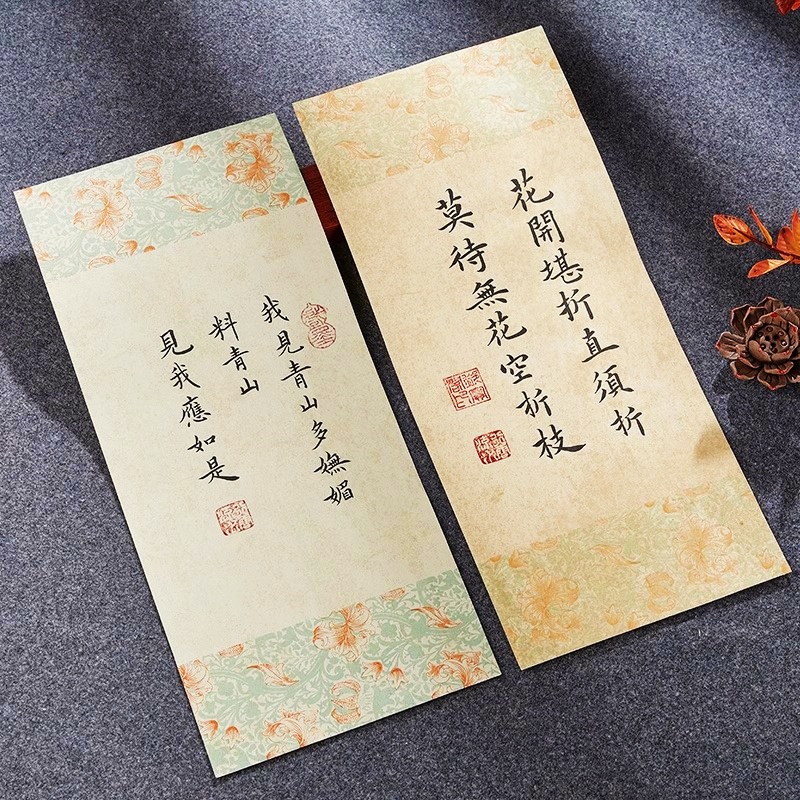 花開堪折直須折
莫待無花空折枝
我見青山多嫵媚
料青山
見我應如是